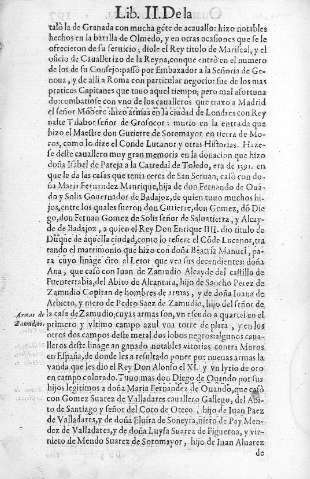 Lib. II. De la
talò la de Granada con mucha gẽte de acauallo: hizo notables
hechos en la batalla de Olmedo, y en otras ocasiones que se le
ofrecieron de su seruicio; diole el Rey titulo de Mariscal, y el
oficio de Cauallerizo de la Reyna, conque entrò en el numero
de los de su Consejo: passò por Embaxador a la Señoria de Ge-
noua, y de alli a Roma con particular negocio: fue de los mas
praticos Capitanes que tuuo aquel tiempo, pero mal afortuna
do: combatiose con vno de los caualleros que traxo a Madrid
el señor hizo armas en la ciudad de Londres con Rey
nalte Tralbot señor de Grofocer: murio en la entrada que
hizo el Maestre don Gutierre de Sotomayor en tierra de Mo-
ros, como lo dize el Conde Lucanor y otras Historias. Haze-
se deste cauallero muy gran memoria en la donacion que hizo
doña Isabel de Pareja a la Catredal de Toledo, era de 1391. en
que le da las casas que tenia cerca de San Seruan, casò con do-
ña Maria Fernandez Manrique, hija de don Fernando de Oua-
do y Solis Gouernador de Badajoz, de quien tuuo muchos hi-
jos, entre los quales fueron don Gutierre, don Gomez, dõ Die
go, don Fernan Gomez de Solis señor de Saluatierra, y Alcay-
de de Badajoz, a quien el Rey don Enrique IIII. dio titulo de
Duque de aquella ciudad, como lo refiere el Cõde Lucanor, tra
tando el matrimonio que hizo con doña Beatriz Manuel, pa-
ra cuyo linage cito al Letor que vea sus decendientes: doña
Ana, que casò con Iuan de Zamudio Alcayde del castillo de
Fuenterrabia, del Abito de Alcantara, hijo de Sancho Perez de
Zamudio Capitan de hombres de armas, y de doña Iuana de
Arbieto, y nieto de Pedro Saez de Zamudio, hijo del señor de
Armas de la casa de Zamudio, cuyas armas son, vn escudo a quartel en el
Zamudios. primero y vltimo campo azul vna torre de plata, y en los
otros dos campos deste metal dos lobos negros: algunos caua-
lleros deste linage an ganado notables vitorias contra Moros
en España, de donde les a resultado poner por nueuas armas la
vanda que les dio el Rey Don Alonso el XI. y vn lyrio de oro
en campo colorado. Tuuo mas don Diego de Ouando por sus
hijos legitimos a doña Maria Fernandez de Ouando, que casò
con Gomez Suarez de Valladares cauallero Gallego, del Abi-
to de Santiago y señor del Coto de Oteeo, hijo de Iuan Paez
de Valladares, y de doña Eluira de Soneyra, nieto de Pay Men-
dez de Valladares, y de doña Luysa Suarez de Figueroa, y viz-
nieto de Mendo Suarez de Sotomayor, hijo de Iuan Aluarez
de